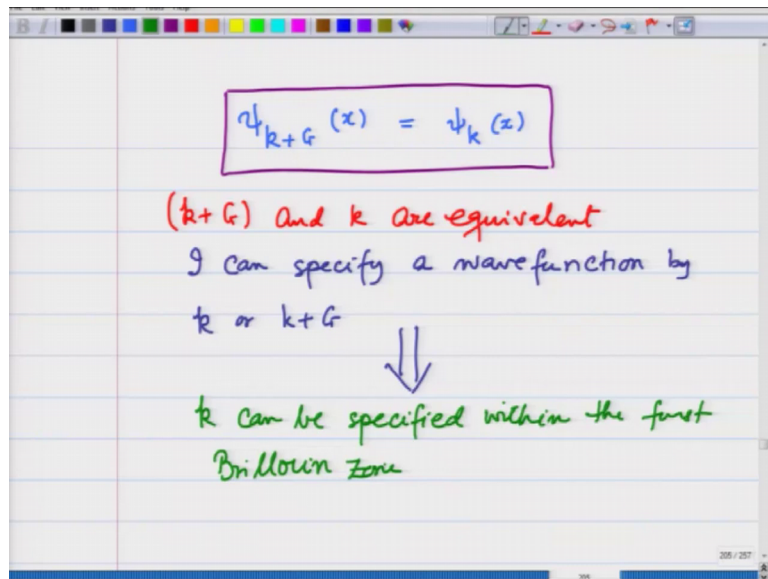 ψ_{k+G} (x) = ψ_k (x)
(k+G) and k are equivalent
I can specify a wavefunction by
k or k+G
⇓
k can be specified within the first
Brillouin Zone
205 / 257
205